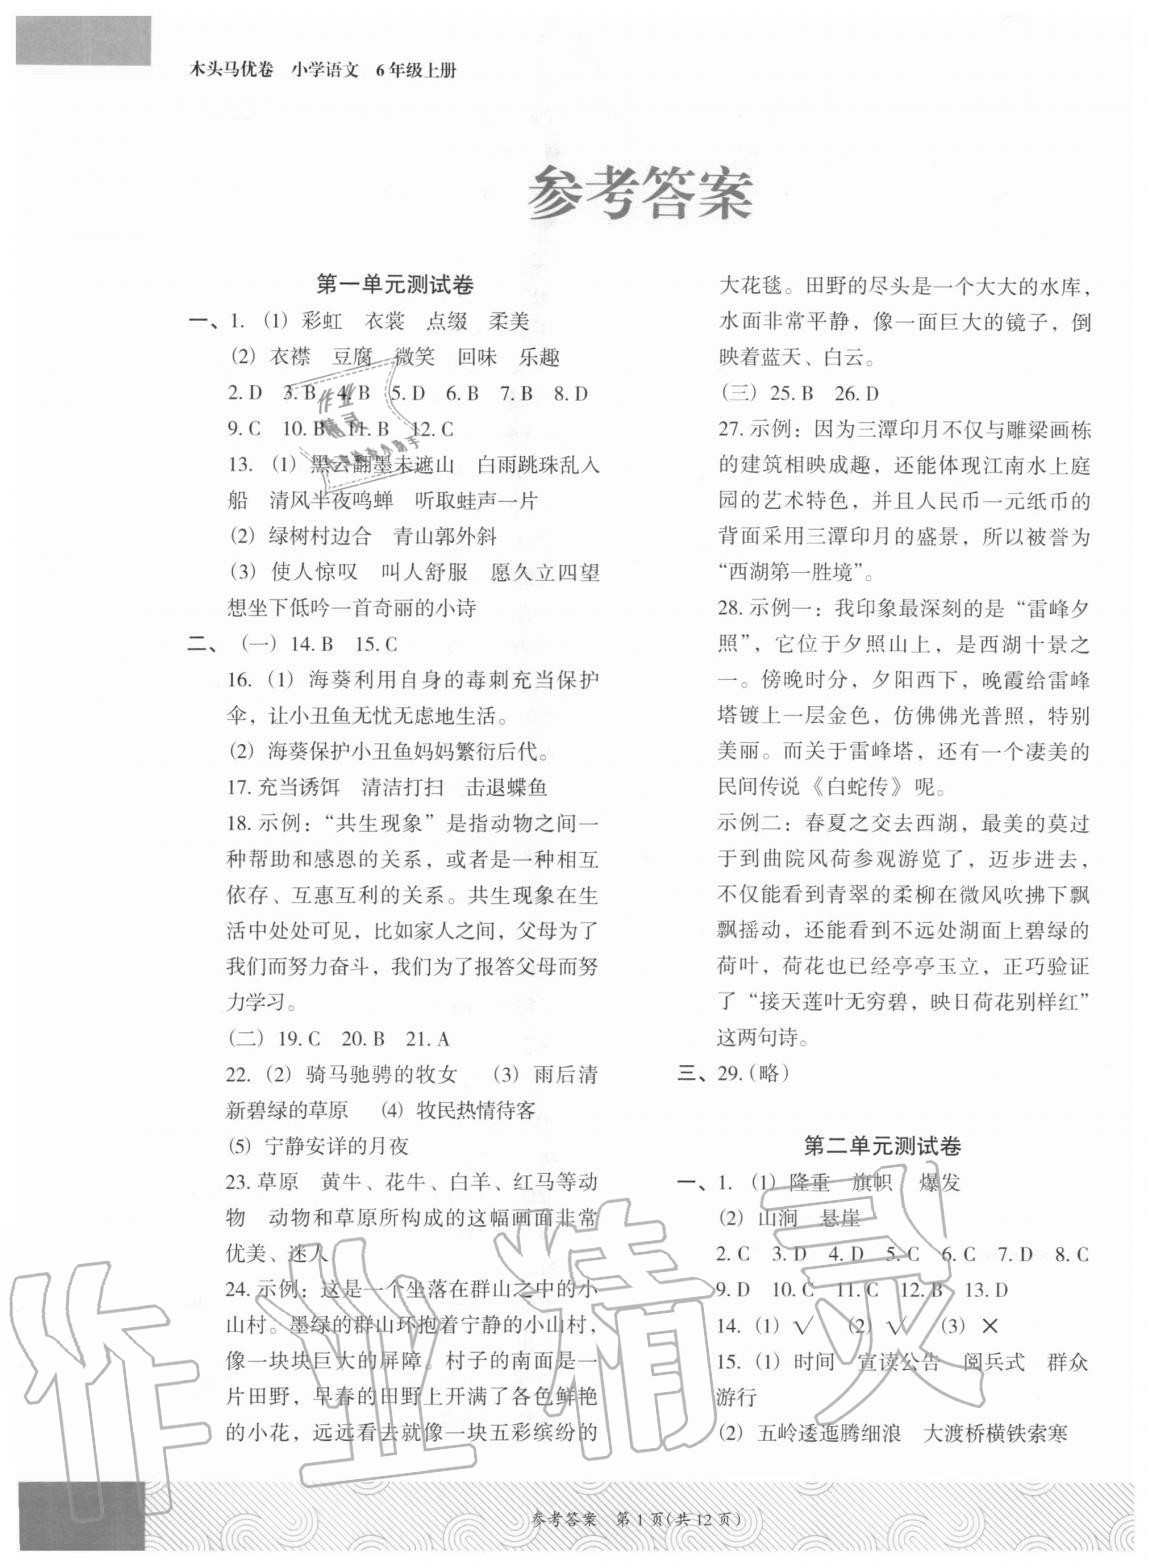 木头马优卷　小学语文　6年级上册
参考答案
第一单元测试卷
一、1.（1）彩虹　衣裳　点缀　柔美
（2）衣襟　豆腐　微笑　回味　乐趣
2. D　3. B　4. B　5. D　6. B　7. B　8. D
9. C　10. B　11. B　12. C
13.（1）黑云翻墨未遮山　白雨跳珠乱入
船　清风半夜鸣蝉　听取蛙声一片
（2）绿树村边合　青山郭外斜
（3）使人惊叹　叫人舒服　愿久立四望
想坐下低吟一首奇丽的小诗
二、（一）14. B　15. C
16.（1）海葵利用自身的毒刺充当保护
伞，让小丑鱼无忧无虑地生活。
（2）海葵保护小丑鱼妈妈繁衍后代。
17. 充当诱饵　清洁打扫　击退蝶鱼
18. 示例：“共生现象”是指动物之间一
种帮助和感恩的关系，或者是一种相互
依存、互惠互利的关系。共生现象在生
活中处处可见，比如家人之间，父母为了
我们而努力奋斗，我们为了报答父母而努
力学习。
（二）19. C　20. B　21. A
22.（2）骑马驰骋的牧女　（3）雨后清
新碧绿的草原　（4）牧民热情待客
（5）宁静安详的月夜
23. 草原　黄牛、花牛、白羊、红马等动
物　动物和草原所构成的这幅画面非常
优美、迷人
24. 示例：这是一个坐落在群山之中的小
山村。墨绿的群山环抱着宁静的小山村，
像一块块巨大的屏障。村子的南面是一
片田野，早春的田野上开满了各色鲜艳
的小花，远远看去就像一块五彩缤纷的
大花毯。田野的尽头是一个大大的水库，
水面非常平静，像一面巨大的镜子，倒
映着蓝天、白云。
（三）25. B　26. D
27. 示例：因为三潭印月不仅与雕梁画栋
的建筑相映成趣，还能体现江南水上庭
园的艺术特色，并且人民币一元纸币的
背面采用三潭印月的盛景，所以被誉为
“西湖第一胜境”。
28. 示例一：我印象最深刻的是“雷峰夕
照”，它位于夕照山上，是西湖十景之
一。傍晚时分，夕阳西下，晚霞给雷峰
塔镀上一层金色，仿佛佛光普照，特别
美丽。而关于雷峰塔，还有一个凄美的
民间传说《白蛇传》呢。
示例二：春夏之交去西湖，最美的莫过
于到曲院风荷参观游览了，迈步进去，
不仅能看到青翠的柔柳在微风吹拂下飘
飘摇动，还能看到不远处湖面上碧绿的
荷叶，荷花也已经亭亭玉立，正巧验证
了“接天莲叶无穷碧，映日荷花别样红”
这两句诗。
三、29.（略）
第二单元测试卷
一、1.（1）隆重　旗帜　爆发
（2）山涧　悬崖
2. C　3. D　4. D　5. C　6. C　7. D　8. C
9. D　10. C　11. C　12. B　13. D
14.（1）√　（2）√　（3）×
15.（1）时间　宣读公告　阅兵式　群众
游行
（2）五岭逶迤腾细浪　大渡桥横铁索寒
参考答案　第1页（共12页）
作业精灵
作业
精灵